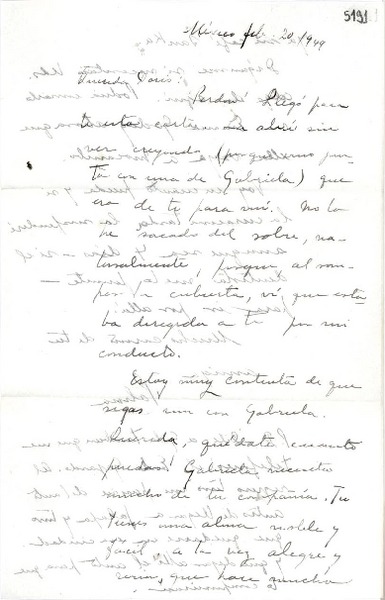 5191
México feb. 20/1949
Querida Doris:
Perdón! Llegó para
ti esta carta. La abrí sin
ver creyendo (porque venía jun-
to con una de Gabriela) que
era de ti para mí. No la
he sacado del sobre, na-
turalmente, porque al rom-
per la cubierta, vi que esta-
ba dirigida a ti por mi
conducto.
Estoy muy contenta de que
sigas aun con Gabriela.
Querida, quédate cuanto
puedas! Gabriela necesita
mucho de tu compañía. Tu
tienes una alma noble y
a la vez alegre y
serena, que hace mucho